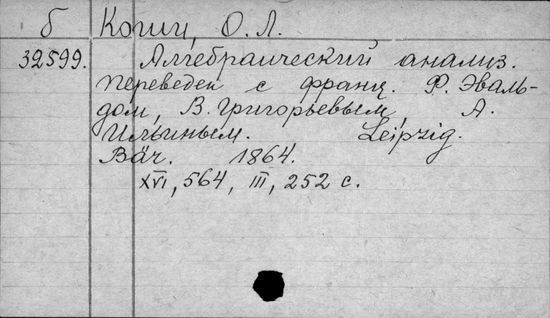 б Коши, О. Л.
32599. Алгебраический анализ.
Переведен с франц. Ф. Эваль-
дом, В. Григорьевым, А.
Ильиным. Leipzig.
Bär. 1864.
XVI, 564, III, 252 с.